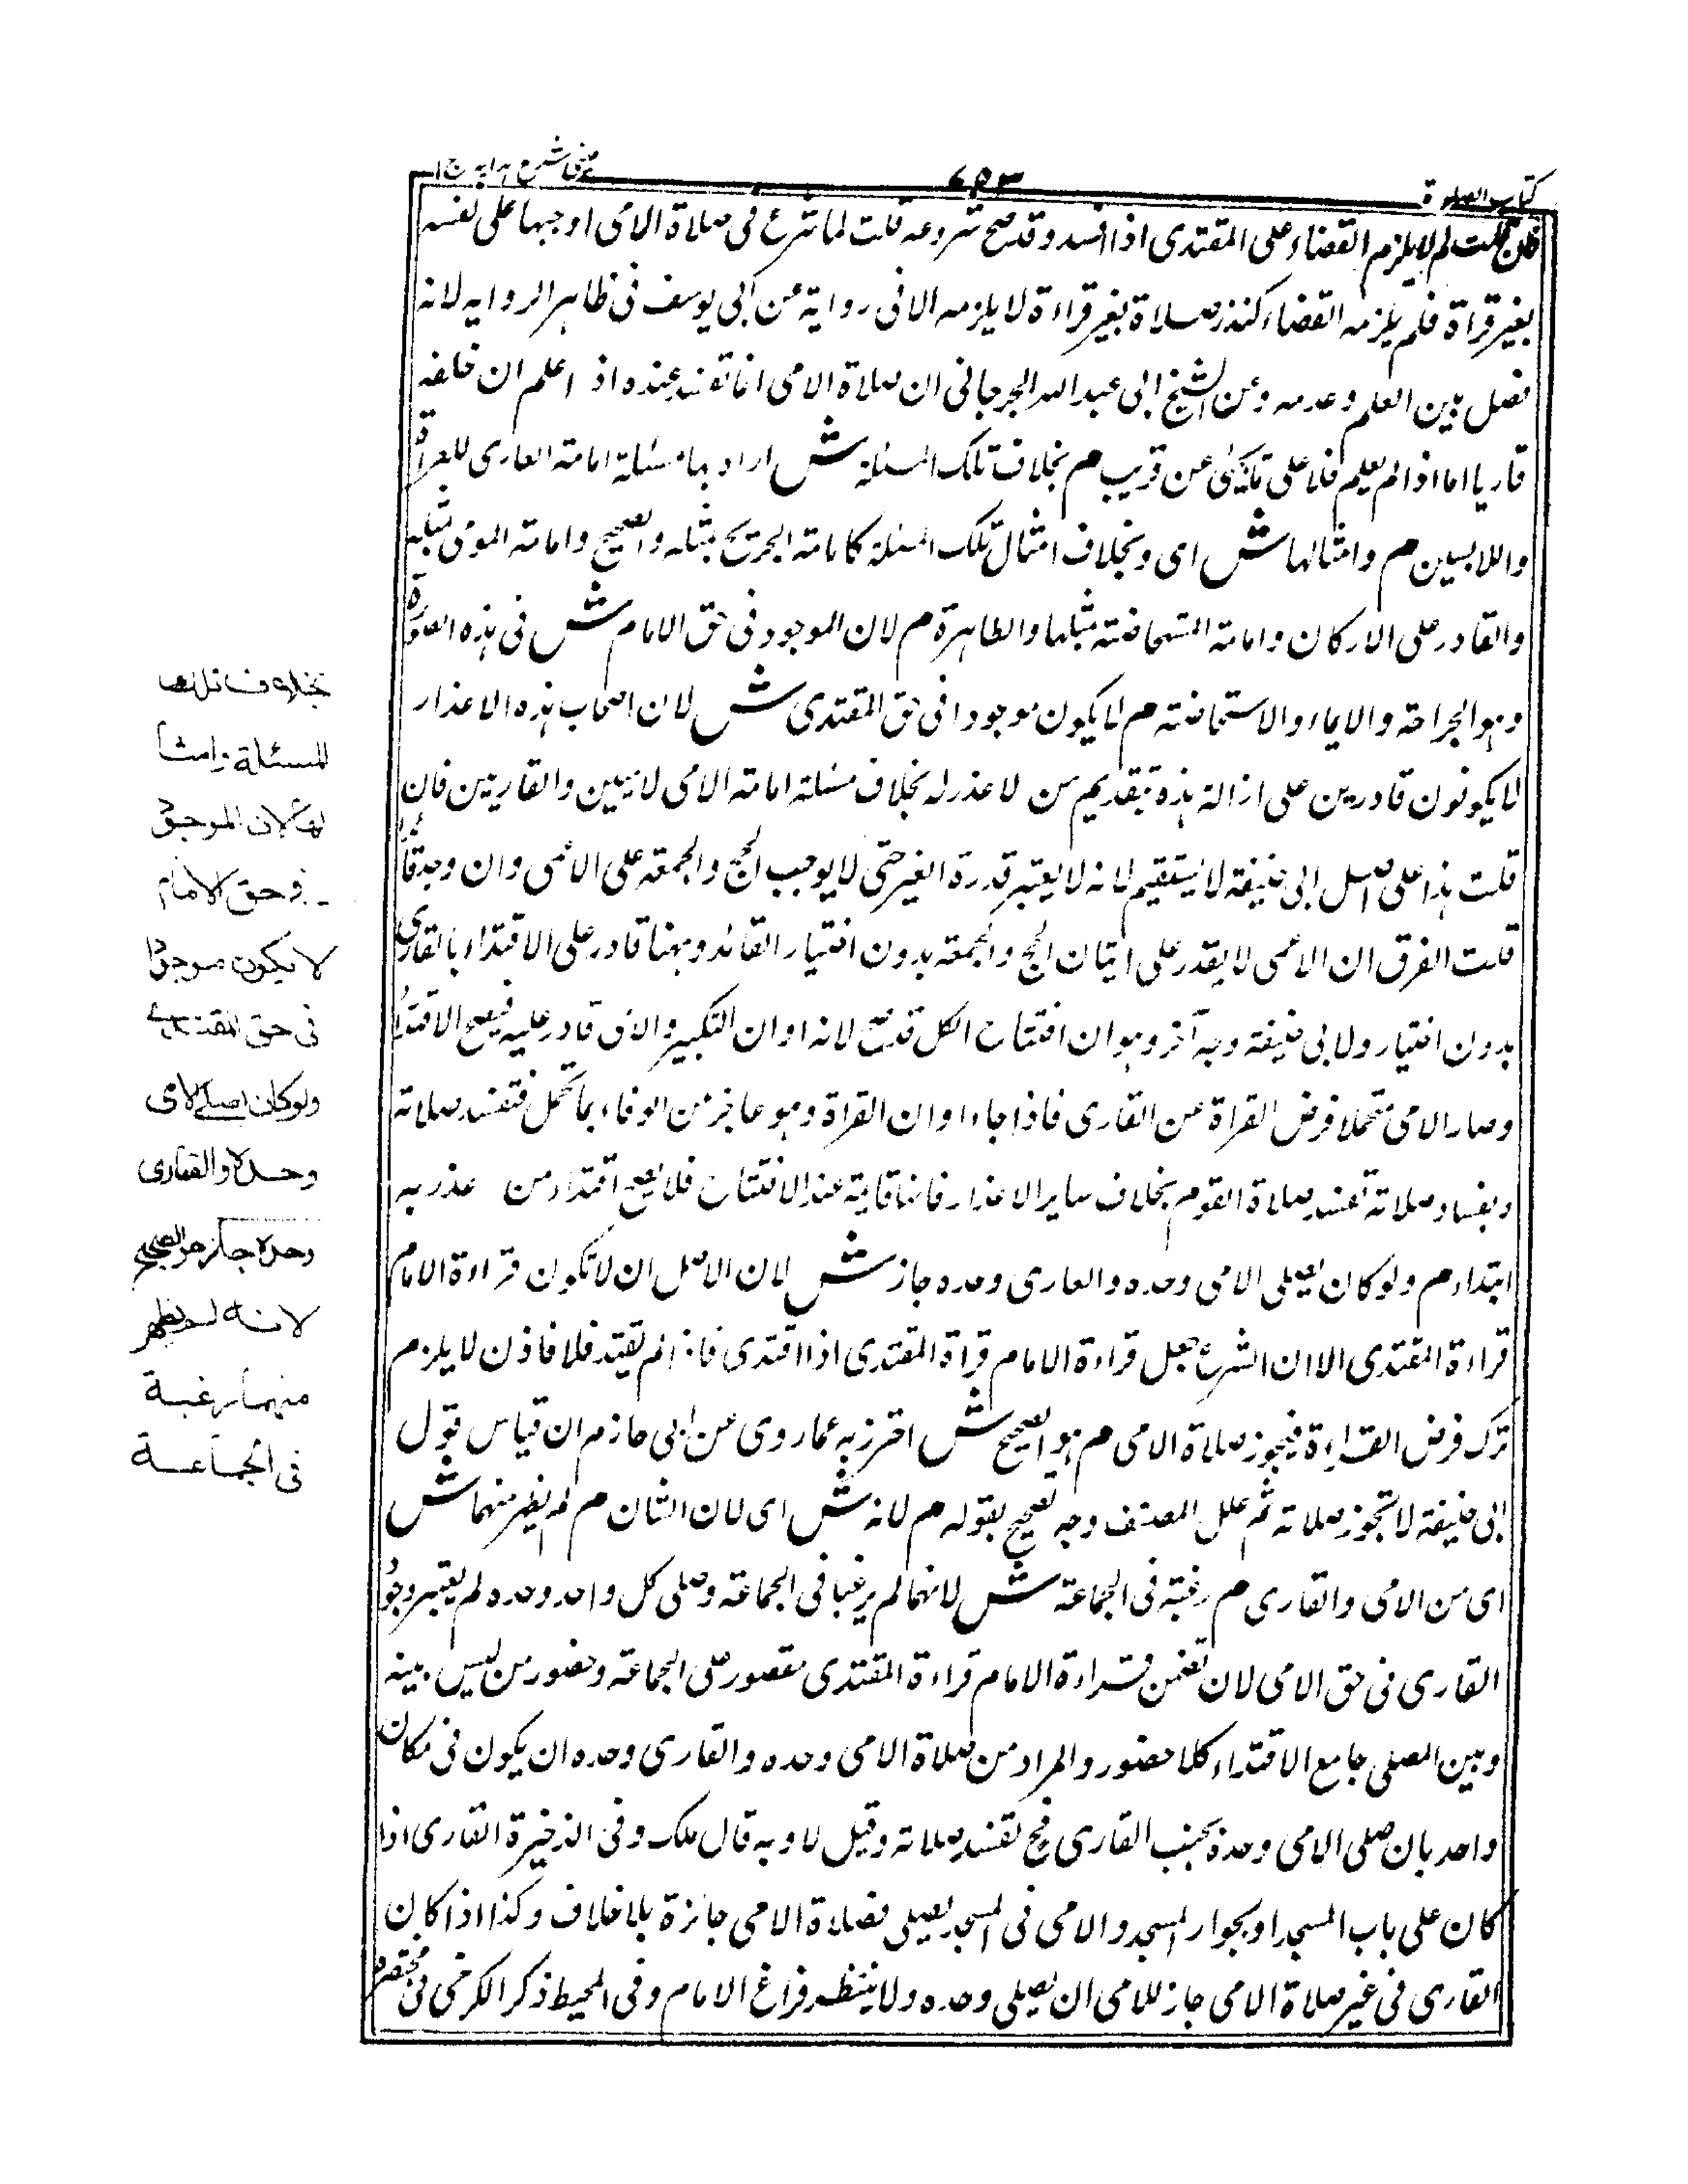 كتاب الصلوة
٧٥٣
عينى شرح هدايه ج ١
فان قلت لم لا يلزم القضاء على المقتدى اذا افسد وقد صح شروعه قلت لما شرع فى صلاة الامى اوجبها على نفسه
بغير قراة فلم يلزمه القضاء كنذر صلاة بغير قراءة لا يلزمه الا فى رواية عن ابى يوسف فى ظاهر الروايه لانه
فصل بين العلم وعدمه وعن الشيخ ابى عبد الله الجرجانى ان صلاة الامى انما تفسد عنده اذ اعلم ان خلفه
قاريا اما اذا لم يعلم فلا على ما يجئ عن قريب م بخلاف تلك المسئلة ش اراد بها مسئلة امامة العارى للعراة
واللابسين م وامثالها ش اى وبخلاف امثال تلك المسئلة كامامة الجريح بمثله والصحيح وامامة المومى بمثله
والقادر على الاركان وامامة المستحاضته بمثلها والطاهرة م لان الموجود فى حق الامام ش فى هذه الصورة
وهو الجراحة والايماء والاستحاضته م لا يكون موجودا فى حق المقتدى ش لان اصحاب هذه الاعذار
لا يكونون قادرين على ازالة هذه بتقديم من لا عذر له بخلاف مسئلة امامة الامى لاميين والقاريين فان
قلت هذا على اصل ابى حنيفة لا يستقيم لانه لا يعتبر قدرة الغير حتى لا يوجب الحج والجمعة على الاعمى وان وجد قائدا
قلت الفرق ان الاعمى لا يقدر على اتيان الحج والجمعة بدون اختيار القائد وههنا قادر على الاقتداء بالقارى
بدون اختيار ولابى حنيفة وجه آخر وهو ان افتتاح الكل قد صح لانه اوان التكبير والامى قادر عليه فيصح الاقتداء
وصار الامى متحملا فرض القراة عن القارى فاذا جاء اوان القراة وهو عاجز من الوفاء بما تحمل فتفسد صلاته
وبفساد صلاته تفسد صلاة القوم بخلاف ساير الاعذار فانها قايمة عند الافتتاح فلا يصح اقتداء من عذر به
ابتداء م ولو كان يصلى الامى وحده والعارى وحده جاز ش لان الاصل ان لا تكون قراءة الامام
قراءة المقتدى الا ان الشرع جعل قراءة الامام قراة المقتدى اذا اقتدى فاذا لم يقتد فلا فاذن لا يلزم
ترك فرض القراءة فيجوز صلاة الامى م هو الصحيح ش احترز به عما روى عن ابى حازم ان قياس قول
ابى حنيفة لا تجوز صلاته ثم علل المصنف وجه تصحيح بقوله م لانه ش اى لان الشان م لم يظهر منهما ش
اى من الامى والقارى م رغبة فى الجماعة ش لانهما لم يرغبا فى الجماعة وصلى كل واحد وحده لم يعتبر وجود
القارى فى حق الامى لان تضمن قراءة الامام قراءة المقتدى مقصور على الجماعة وحضور من ليس بينه
وبين المصلى جامع الاقتداء كلا حضور والمراد من صلاة الامى وحده والقارى وحده ان يكون فى مكان
واحد بان صلى الامى وحدة بجنب القارى فح تفسد صلاته وقيل لا وبه قال ملك وفى الذخيرة القارى اذا
كان على باب المسجد او بجوار المسجد والامى فى المسجد يصلى فصلاة الامى جائزة بلا خلاف وكذا اذا كان
القارى فى غير صلاة الامى جاز للامى ان يصلى وحده ولا ينتظر فراغ الامام وفى المحيط ذكر الكرخى فى مختصره
بخلاف تلك
المسئلة وامثا
لها لان الموجود
فى حق الامام
لا يكون موجودا
فى حق المقتدى
ولو كان يصلى الامى
وحدة والقارى
وحده جاز هو الصحيح
لانه لم يظهر
منهما رغبة
فى الجماعة